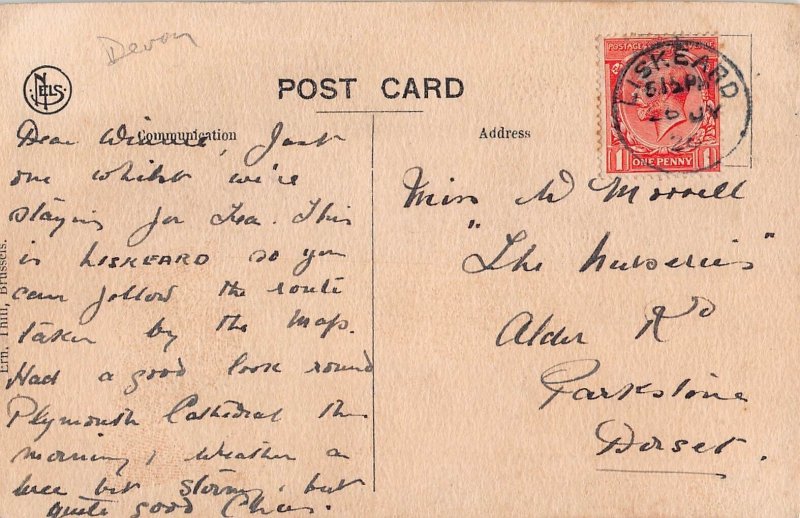 Devon
NELS
POST CARD
Communication
Address
POSTAGE
ONE PENNY
1 1
LISKEARD
6.15 PM
26 JY
20
Dear Winnie, Just
one whilst we're
staying for Tea. This
is LISKEARD so you
can follow the route
taken by the map.
Had a good look round
Plymouth Cathedral this
morning, weather a
wee bit stormy, but
quite good Chas.
Miss W Morrell
"The Nurseries"
Alder Rd
Parkstone
Dorset.
Ern. Thill, Brussels.